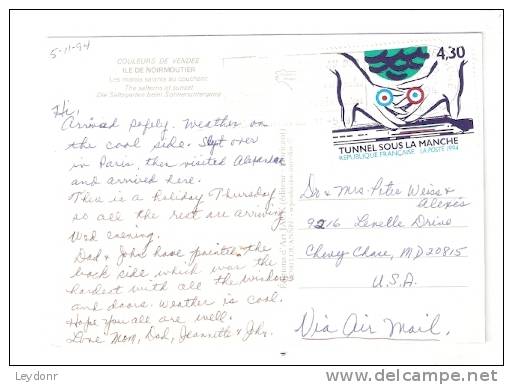 5-11-94
COULEURS DE VENDEE
ILE DE NOIRMOUTIER
Les marais salants au couchant
The salterns at sunset
Die Salzgärten beim Sonnenuntergang
4,30
TUNNEL SOUS LA MANCHE
REPUBLIQUE FRANÇAISE LA POSTE 1994
Hi,
Arrived safely. Weather on
the cool side. Slept over
in Paris, then visited
and arrived here.
This is a holiday Thursday
so all the rest are arriving
Wed evening.
Dad & John have painted the
back side which was the
hardest with all the windows
and doors. Weather is cool.
Hope you all are well.
Love Mom, Dad, Jeannette & John.
Dr & Mrs. Peter Weiss &
Alexis
9216 Levelle Drive
Chevy Chase, MD 20815
U.S.A.
Via Air Mail.
Leydonr
delcampe.net